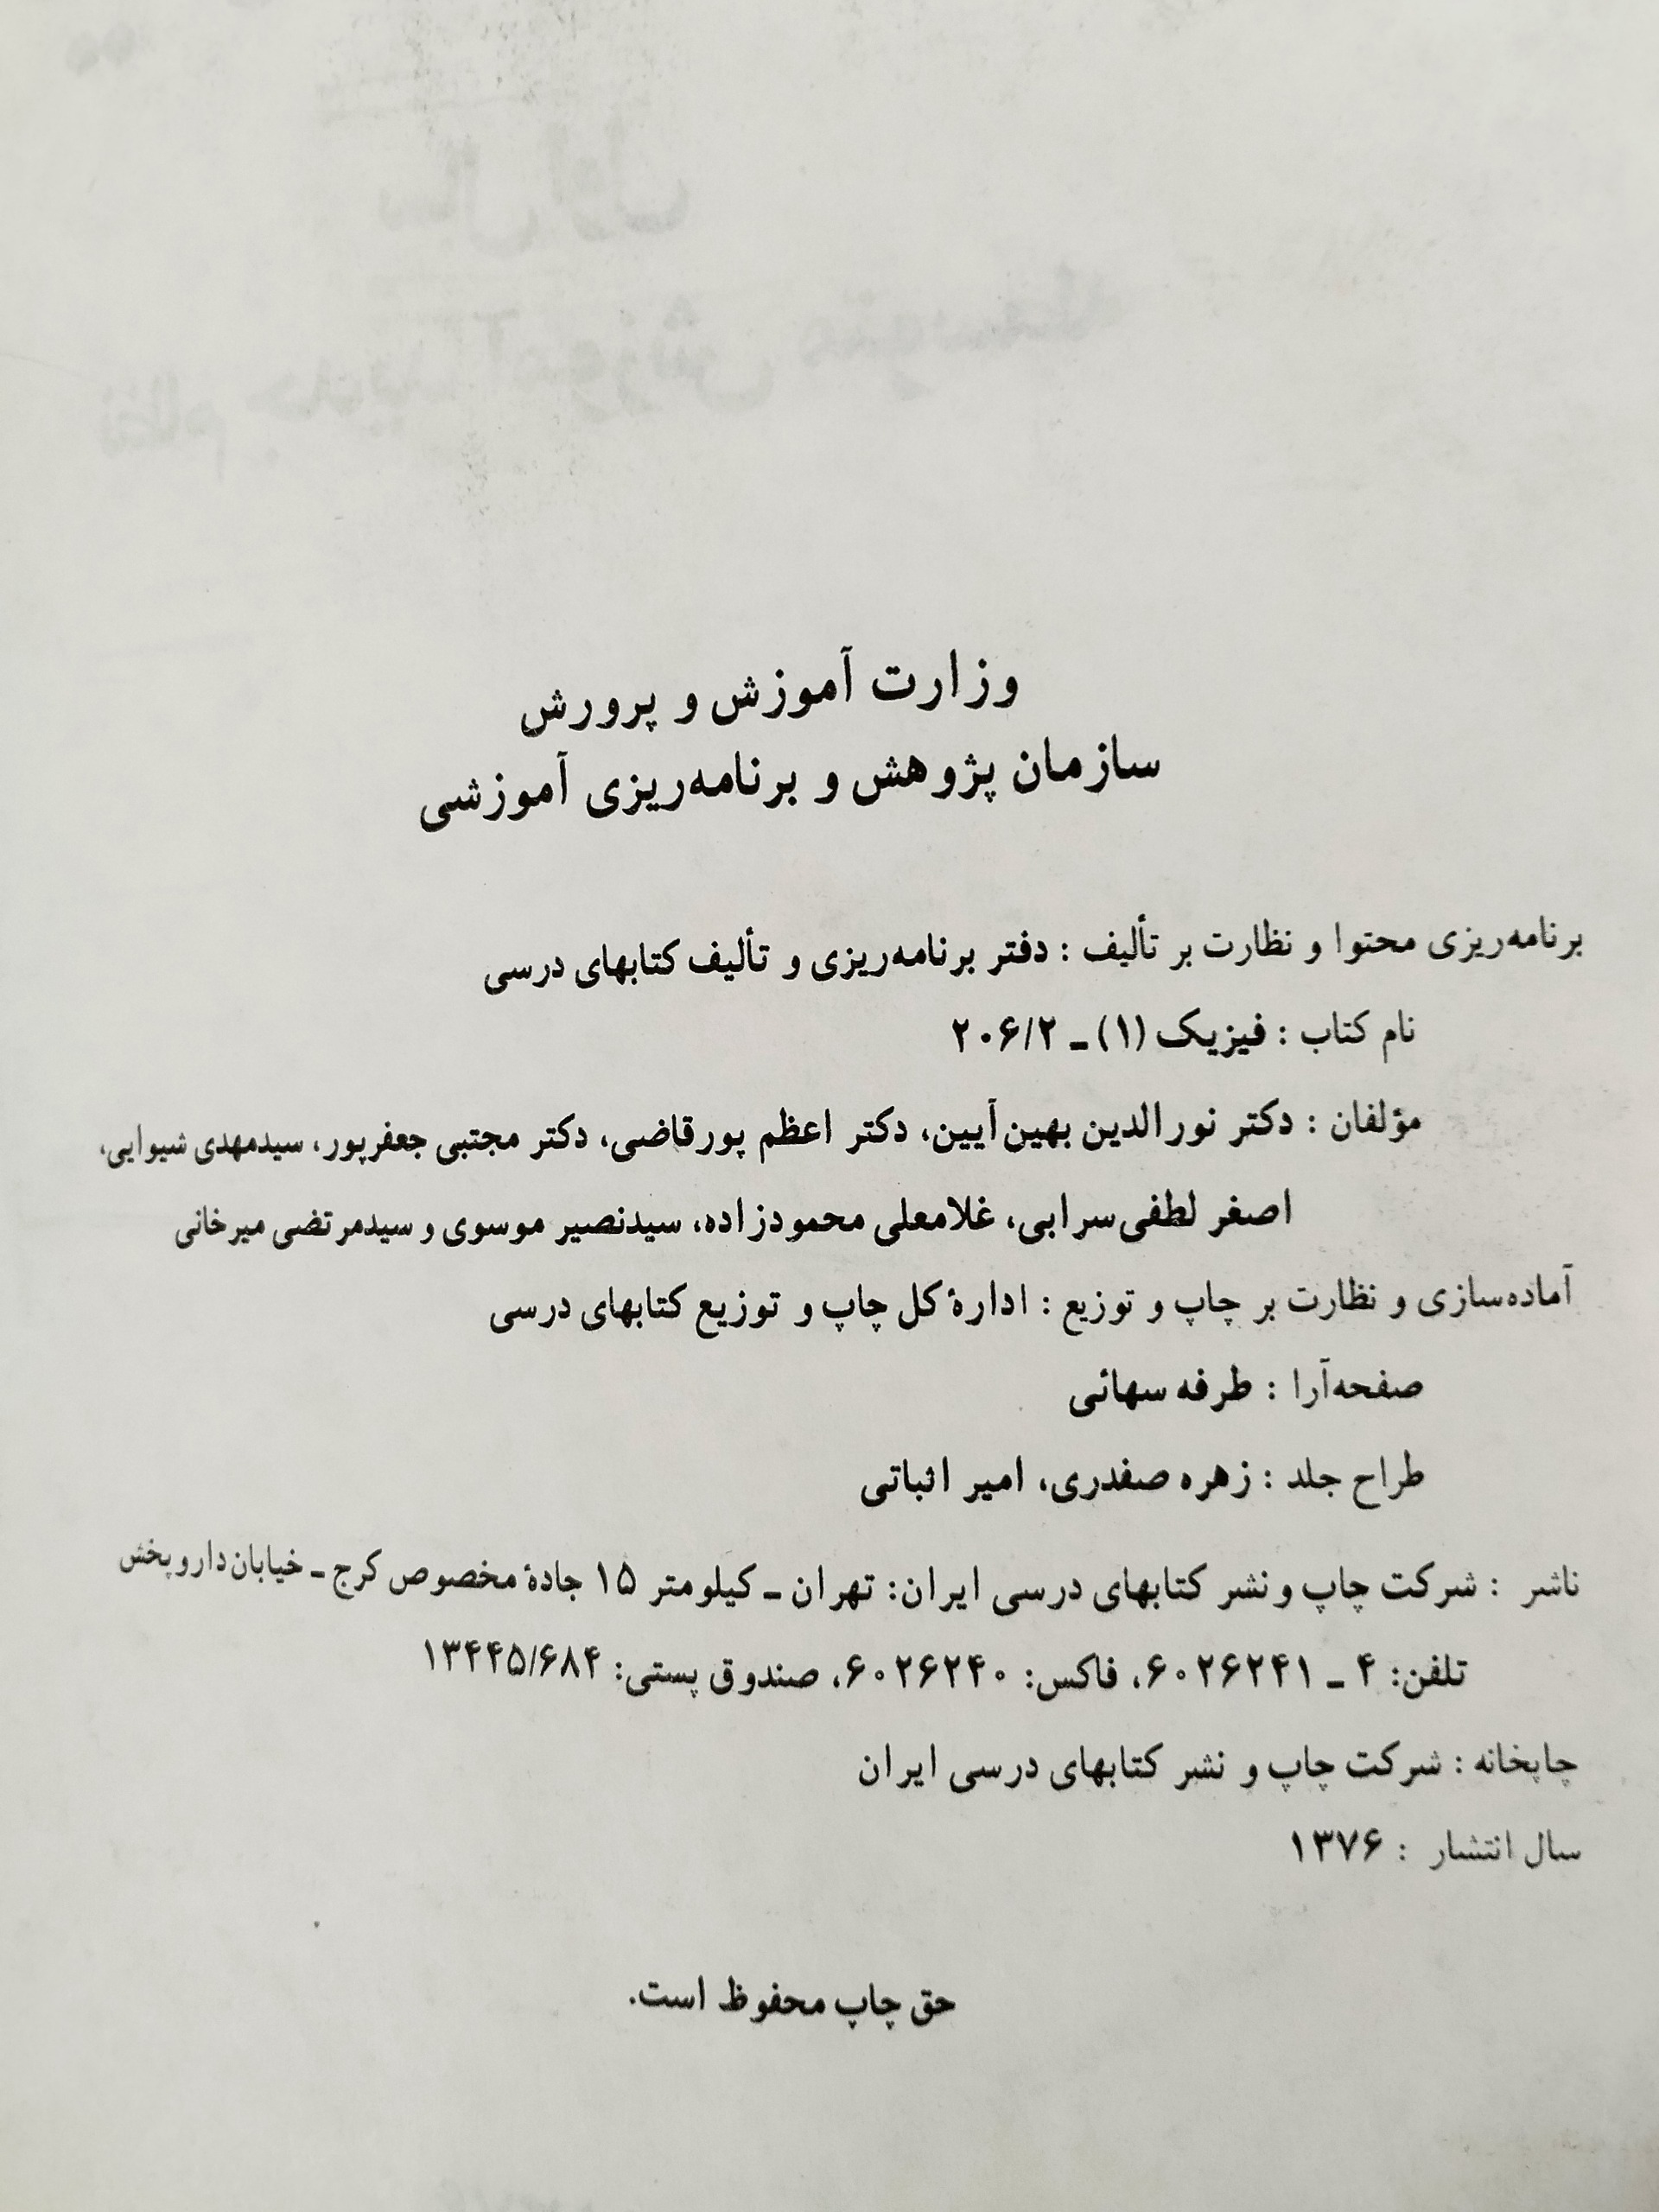 وزارت آموزش و پرورش
سازمان پژوهش و برنامه‌ریزی آموزشی
برنامه‌ریزی محتوا و نظارت بر تألیف : دفتر برنامه‌ریزی و تألیف کتابهای درسی
نام کتاب : فیزیک (۱) ـ ۲۰۶/۲
مؤلفان : دکتر نورالدین بهین‌آیین، دکتر اعظم پورقاضی، دکتر مجتبی جعفرپور، سیدمهدی شیوایی،
اصغر لطفی‌سرابی، غلامعلی محمودزاده، سیدنصیر موسوی و سیدمرتضی میرخانی
آماده‌سازی و نظارت بر چاپ و توزیع : ادارهٔ کل چاپ و توزیع کتابهای درسی
صفحه‌آرا : طرفه سهائی
طراح جلد : زهره صفدری، امیر اثباتی
ناشر : شرکت چاپ و نشر کتابهای درسی ایران: تهران ـ کیلومتر ۱۵ جادهٔ مخصوص کرج ـ خیابان داروپخش
تلفن: ۴ ـ ۶۰۲۶۲۴۱، فاکس: ۶۰۲۶۲۴۰، صندوق پستی: ۱۳۴۴۵/۶۸۴
چاپخانه : شرکت چاپ و نشر کتابهای درسی ایران
سال انتشار : ۱۳۷۶
حق چاپ محفوظ است.